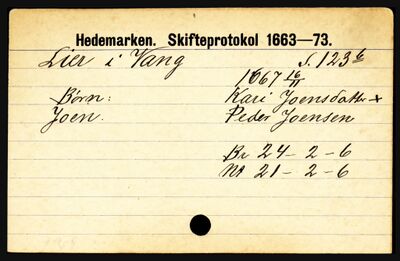 Hedemarken. Skifteprotokol 1663—73.
Lier i Vang s. 123 b
1667 16/11
Børn: Kari Joensdatter +
Joen. Peder Joensen
Br 24 - 2 - 6
Nt 21 - 2 - 6